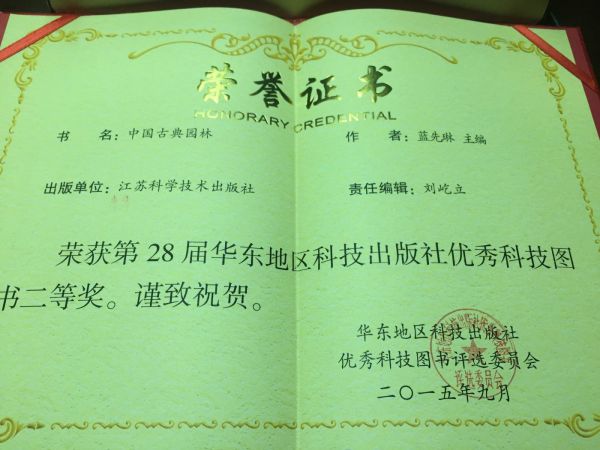 荣誉证书
HONORARY CREDENTIAL
书 名：中国古典园林 作 者：蓝先琳 主编
出版单位：江苏科学技术出版社 责任编辑：刘屹立
荣获第28届华东地区科技出版社优秀科技图
书二等奖。谨致祝贺。
华东地区科技出版社
优秀科技图书评选委员会
二〇一五年九月
评选委员会